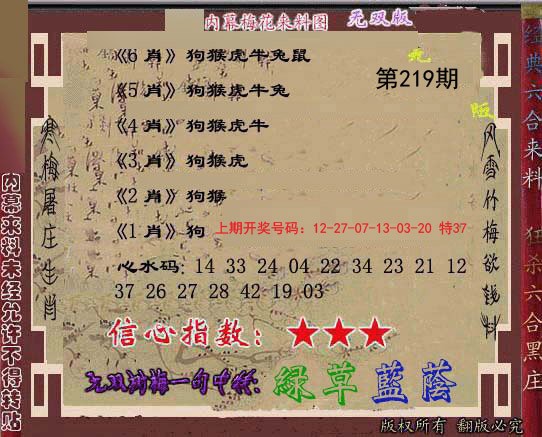 内幕梅花来料图 无双版
《6 肖》狗猴虎牛兔鼠
第219期
《5 肖》狗猴虎牛兔
《4 肖》狗猴虎牛
《3 肖》狗猴虎
《2 肖》狗猴
《1 肖》狗
上期开奖号码：12-27-07-13-03-20 特37
心水码：14 33 24 04 22 34 23 21 12
37 26 27 28 42 19 03
信心指数：★★★
一句中特：綠草藍蔭
版权所有 翻版必究
寒梅屠庄生肖
风雪竹梅欲钱料
内幕来料未经允许不得转贴
经典六合来料
狂杀六合黑庄